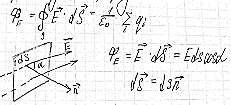 Φ_E = ∮_S E⃗ · dS⃗ = 1/ε₀ ∫ q_i
dS
E⃗
α
n⃗
Φ_E = E⃗ · dS⃗ = E dS cosα
dS⃗ = dS n⃗